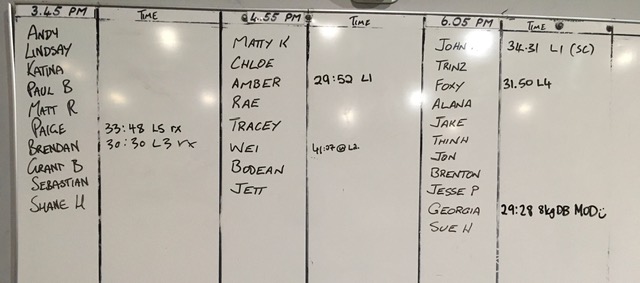 3.45 PM TIME
ANDY
LINDSAY
KATINA
PAUL B
MATT R
PAIGE 33:48 L5 rx
BRENDAN 30:30 L3 rx
GRANT B
SEBASTIAN
SHANE H
4.55 PM TIME
MATTY K
CHLOE
AMBER 29:52 L1
RAE
TRACEY
WEI 41:07 @ L2
BODEAN
JETT
6.05 PM TIME
JOHN 34.31 L1 (SC)
TRINZ
FOXY 31.50 L4
ALANA
JAKE
THINH
JON
BRENTON
JESSE P
GEORGIA 29:28 8kgDB MOD
SUE H